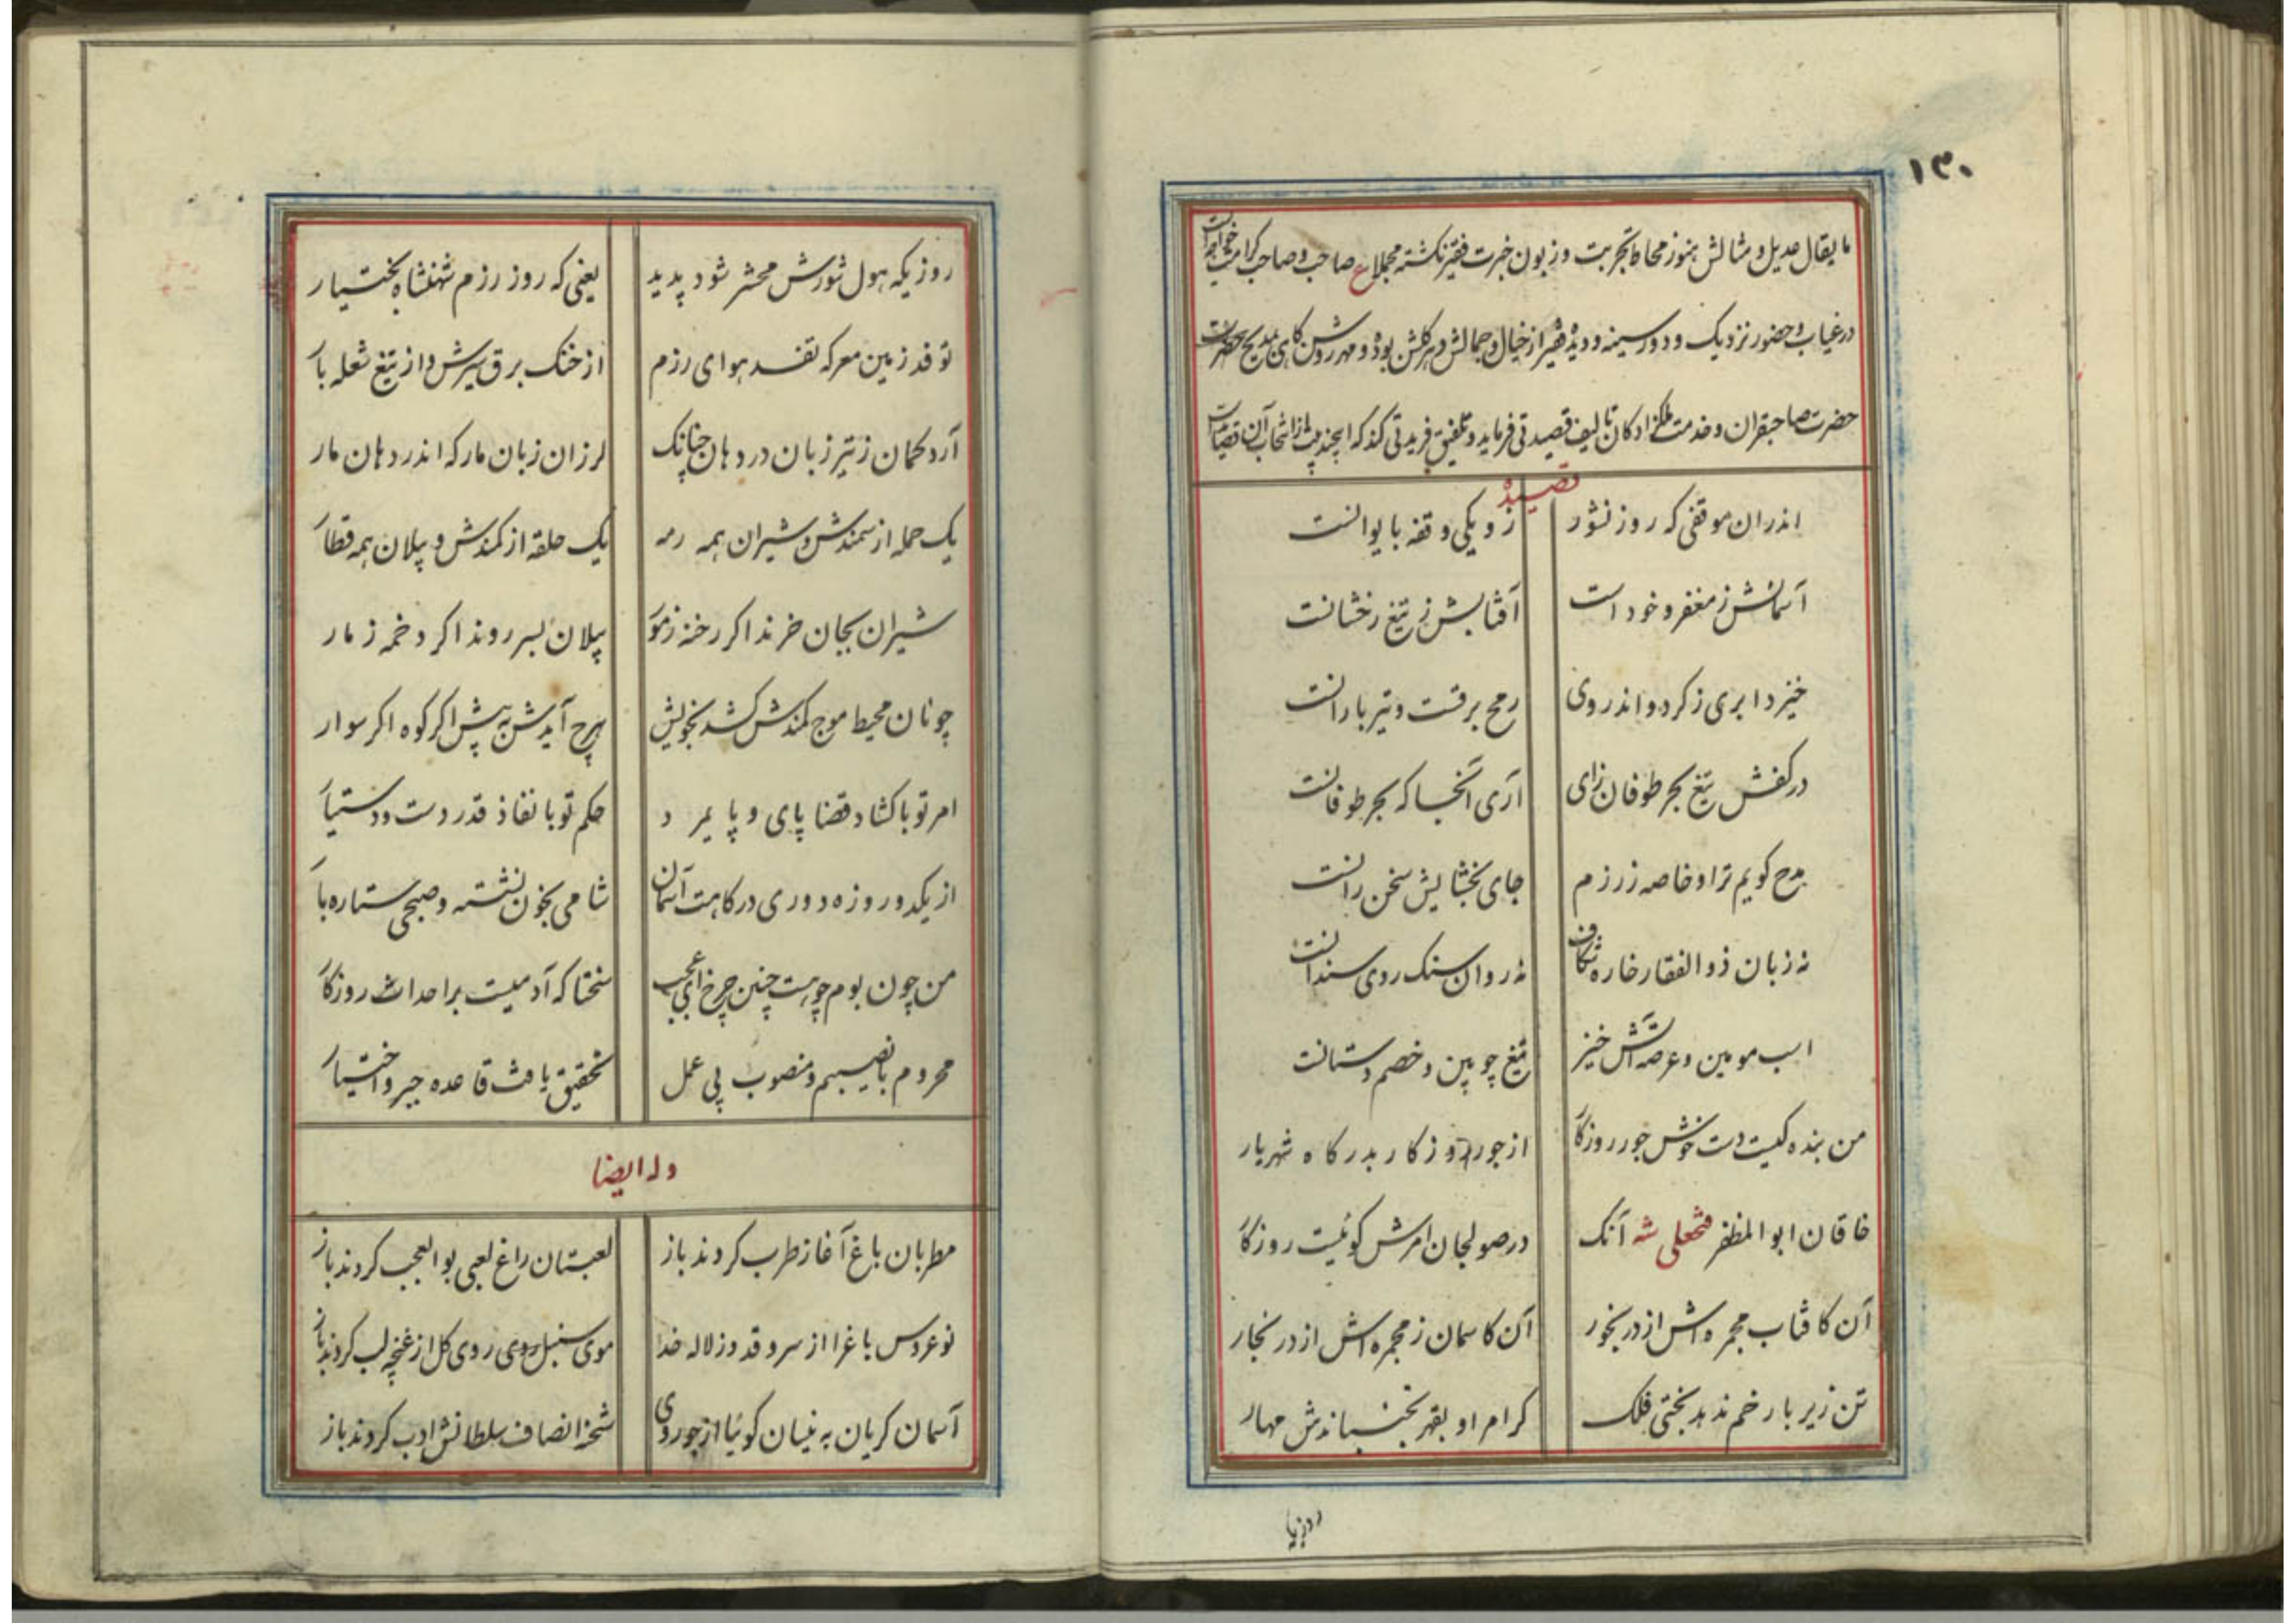 ۱۳۰
ما یقال عدیل و مثالش هنوز محاط تجربت و زبون خبرت فقیر نگشته مجملا ع صاحب و صاحب کرامت
در غیاب و حضور نزدیک و دور سینه و دیده فقیر از خیال و جمالش گلشن بوده و مهر روشن کاهی بمدیح حضرت
حضرت صاحبقران و خدمت ملکزادکان تالیف قصیدتی فرماید و تلفیق فریدتی کند که این چند بیت از انتخاب آن قصایدست
قصیده
اندران موقفی که روز نشور زو یکی وقفه با یوانست
آسمانش ز مغفر و خود است آفتابش ز تیغ رخشانست
خیزد ابری ز کرد و اندر وی رمح برقست و تیر بارانست
در کفش تیغ بحر طوفان زای آری آنجا که بحر طوفانست
مدح کویم ترا و خاصه ز رزم جای بخشایش سخن رانست
نه زبان ذوالفقار خاره شکاف نه روان سنک روی سندانست
اسب مومین و عرصه آتش خیز تیغ چوبین و خصم دستانست
من بنده کیست دست خوش جور روزکار از جور روزکار بدرکاه شهریار
خاقان ابوالمظفر فتحعلی شه آنک در صولجان امرش کوئیست روزکار
آن کافتاب مجمره اش از در بخور آن کاسمان ز مجمره اش از در بخار
تن زیر بار خم ندهد بختی فلک کر امر او بقهر بخنباندش مهار
روزیکه
روزیکه هول شورش محشر شود پدید یعنی که روز رزم شهنشاه بختیار
توفد زمین معرکه تفسد هوای رزم از خنک برق سیرش و از تیغ شعله بار
آرد کمان ز تیر زبان در دهان چنانک لرزان زبان مار که اندر دهان مار
یک حمله از سمندش و شیران همه رمه یک حلقه از کمندش و پیلان همه قطار
شیران بجان خرند اکر رخنه ز مور پیلان بسر روند اکر دخمه ز مار
چونان محیط موج کمندش کشد بخویش هرچ آیدش به پیش اکر کوه اکر سوار
امر تو با کشاد قضا پای و پایمرد حکم تو با نفاذ قدر دست و دستیار
از یکدو روزه دوری درکاهت آسمان شامی بخون نشسته و صبحی ستاره بار
من چون بوم چو هست چنین چرخ ای عجب سختا که آدمیست بر احداث روزکار
محروم با نصیبم و منصوب بی عمل تحقیق باعث قاعده جبر و اختیار
وله ایضا
مطربان باغ آغاز طرب کردند باز لعبتان راغ لعبی بوالعجب کردند باز
نوعروس باغ را از سرو قد وز لاله خد موی سنبل روی کل از غنچه لب کردند باز
آسمان کریان به نیسان کوئیا از جور وی شحنه انصاف سلطانش ادب کردند باز